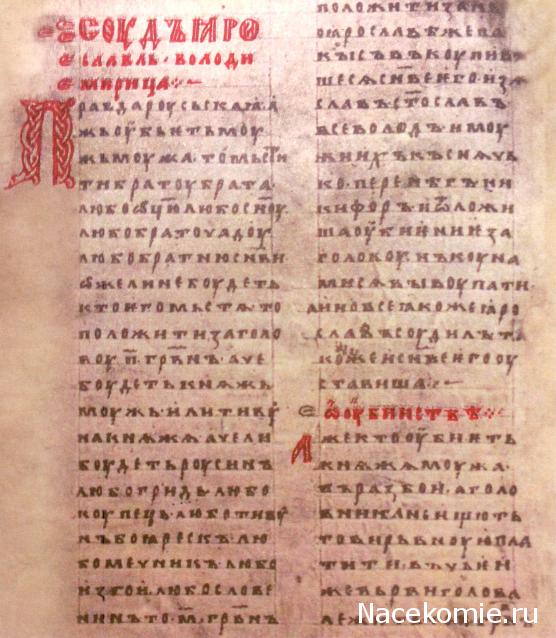 СОУДЪ ꙖРО
СЛАВЛЬ · ВОЛОДИ
МИРИЦА :·~
Правда роусьскаꙗ · а
жь оубьѥть моу
жь моужа · то мьсти
ти братоу брата ·
любо ѡц҃ю любо сн҃оу ·
любо братоучадоу ·
любо братню сн҃ви
ѡже ли не боудеть
кто ѥго мьстѧ то
положити за голо
воу · п҃ · грв҃нъ · аче
боудеть кнѧжь
моужь · или тивоу
на кнѧжѧ · аче ли
боудеть роусинъ ·
любо гридь · любо
коупець · любо тивоу
нъ боꙗреск · лю
бо мечникъ · любо
изгои · любо слове
нинъ то · м҃ · грв҃нъ
положити за нь
по ꙗрославѣ же па
кы съвъкоупивъ
шесѧ сн҃ве ѥго изѧ
славъ · ст҃ославъ ·
всеволодъ · и моу
жи ихъ · къснѧчь
ко · перенѣгъ · ни
кифоръ · и ѿложи
ша оубиѥниѥ за
головоу · нъ коуна
ми сѧ выкоупати ·
а ино все ꙗкоже ꙗро
славъ соудилъ · та
коже и сн҃ве ѥго оу
ставиша :·~
ѡ оубииствѣ :·
Аже кто оубиѥть
кнѧжа моужа ·
въ разбои · а голо
вника не ищють
то вирьвноую пла
тити · въ чьѥи
же вьрви голова
Nacekomie.ru